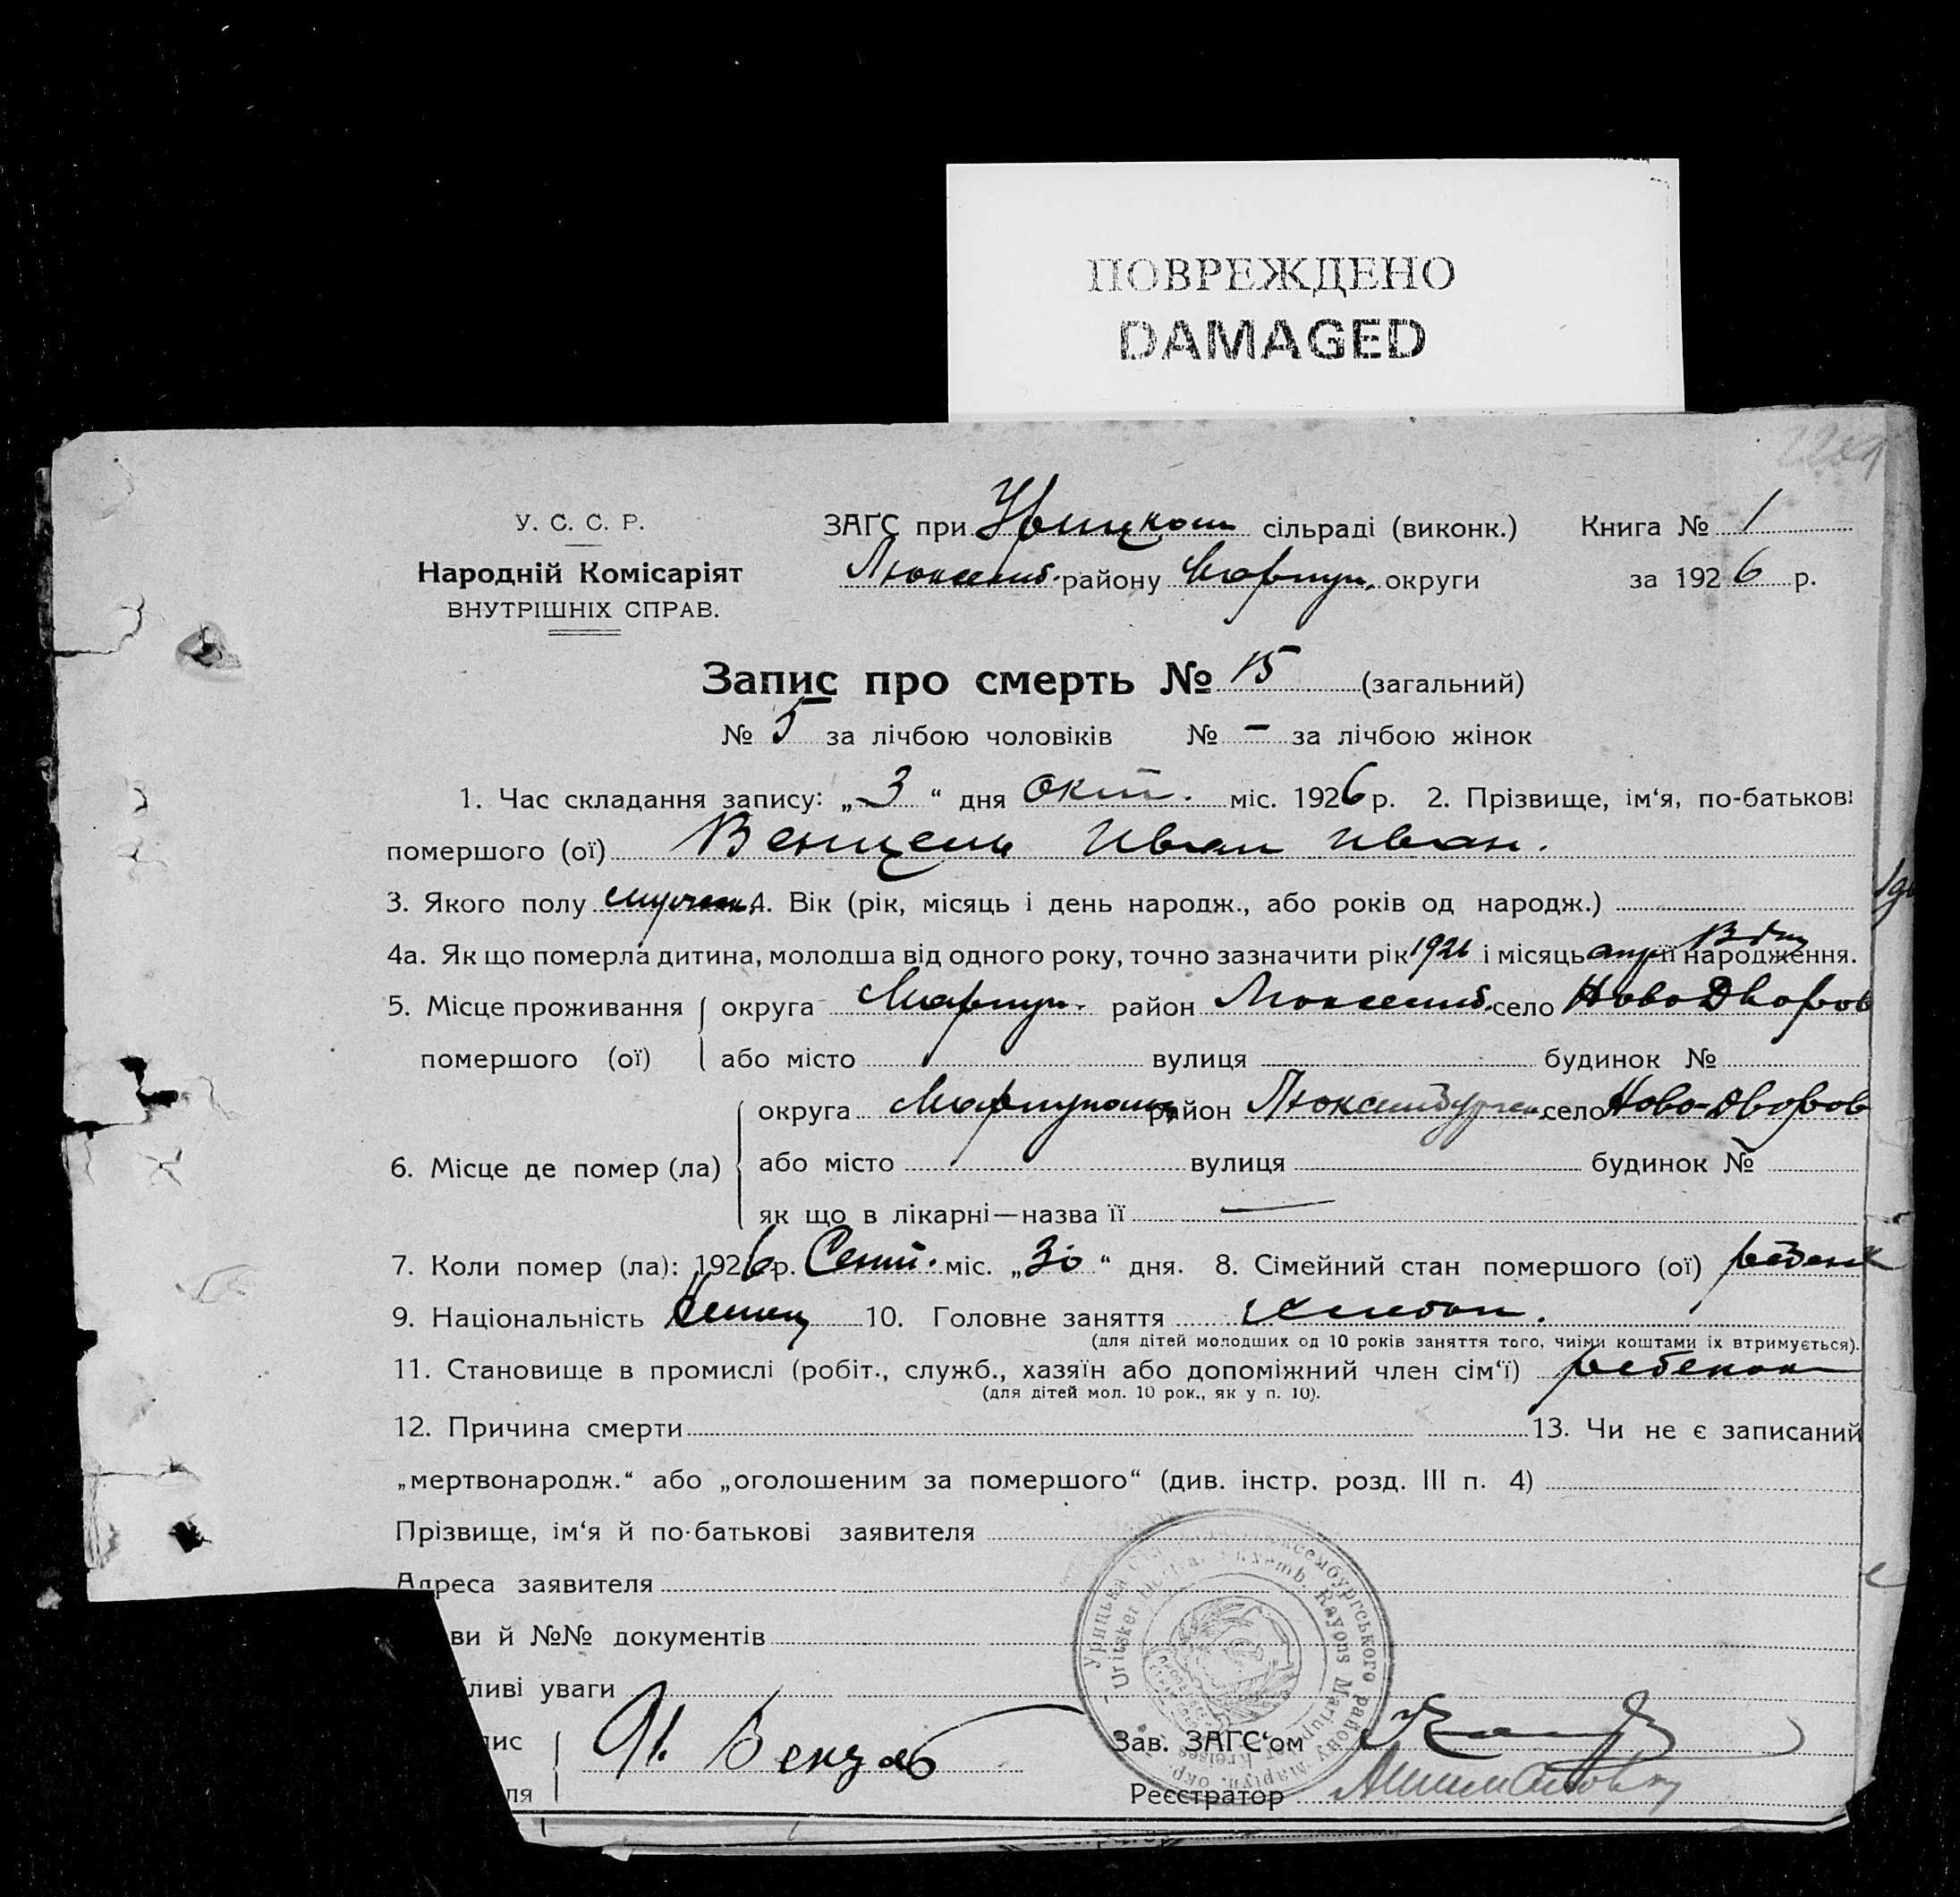 ПОВРЕЖДЕНО
DAMAGED
У. С. С. Р.
Народній Комісаріят
ВНУТРІШНІХ СПРАВ.
ЗАҐС при Урицком сільраді (виконк.) Книга № 1
Люксемб. району Мариуп. округи за 1926 р.
Запис про смерть № 15 (загальний)
№ 5 за лічбою чоловіків № – за лічбою жінок
1. Час складання запису: „3“ дня окт. міс. 1926 р. 2. Прізвище, ім‘я, по-батькові
помершого (ої) Венцель Иван Иван.
3. Якого полу мужск. 4. Вік (рік, місяць і день народж., або років од народж.)
4а. Як що померла дитина, молодша від одного року, точно зазначити рік 1926 і місяць її народження.
5. Місце проживання помершого (ої) округа Мариуп. район Люксемб. село Ново Дворов
або місто вулиця будинок №
6. Місце де помер (ла) округа Мариупольск район Люксембургск село Ново-Дворов
або місто вулиця будинок №
як що в лікарні—назва її —
7. Коли помер (ла): 1926 р. Сент. міс. „30“ дня. 8. Сімейний стан помершого (ої) ребенк
9. Національність Немец 10. Головне заняття
(для дітей молодших од 10 років заняття того, чиїми коштами їх втримується).
11. Становище в промислі (робіт., служб., хазяїн або допоміжний член сім‘ї) ребенок
(для дітей мол. 10 рок., як у п. 10).
12. Причина смерти 13. Чи не є записаний
„мертвонародж.“ або „оголошеним за помершого“ (див. інстр. розд. III п. 4)
Прізвище, ім‘я й по-батькові заявителя
Адреса заявителя
ви й №№ документів
ливі уваги
пис
ля
Зав. ЗАҐС‘ом
Реєстратор